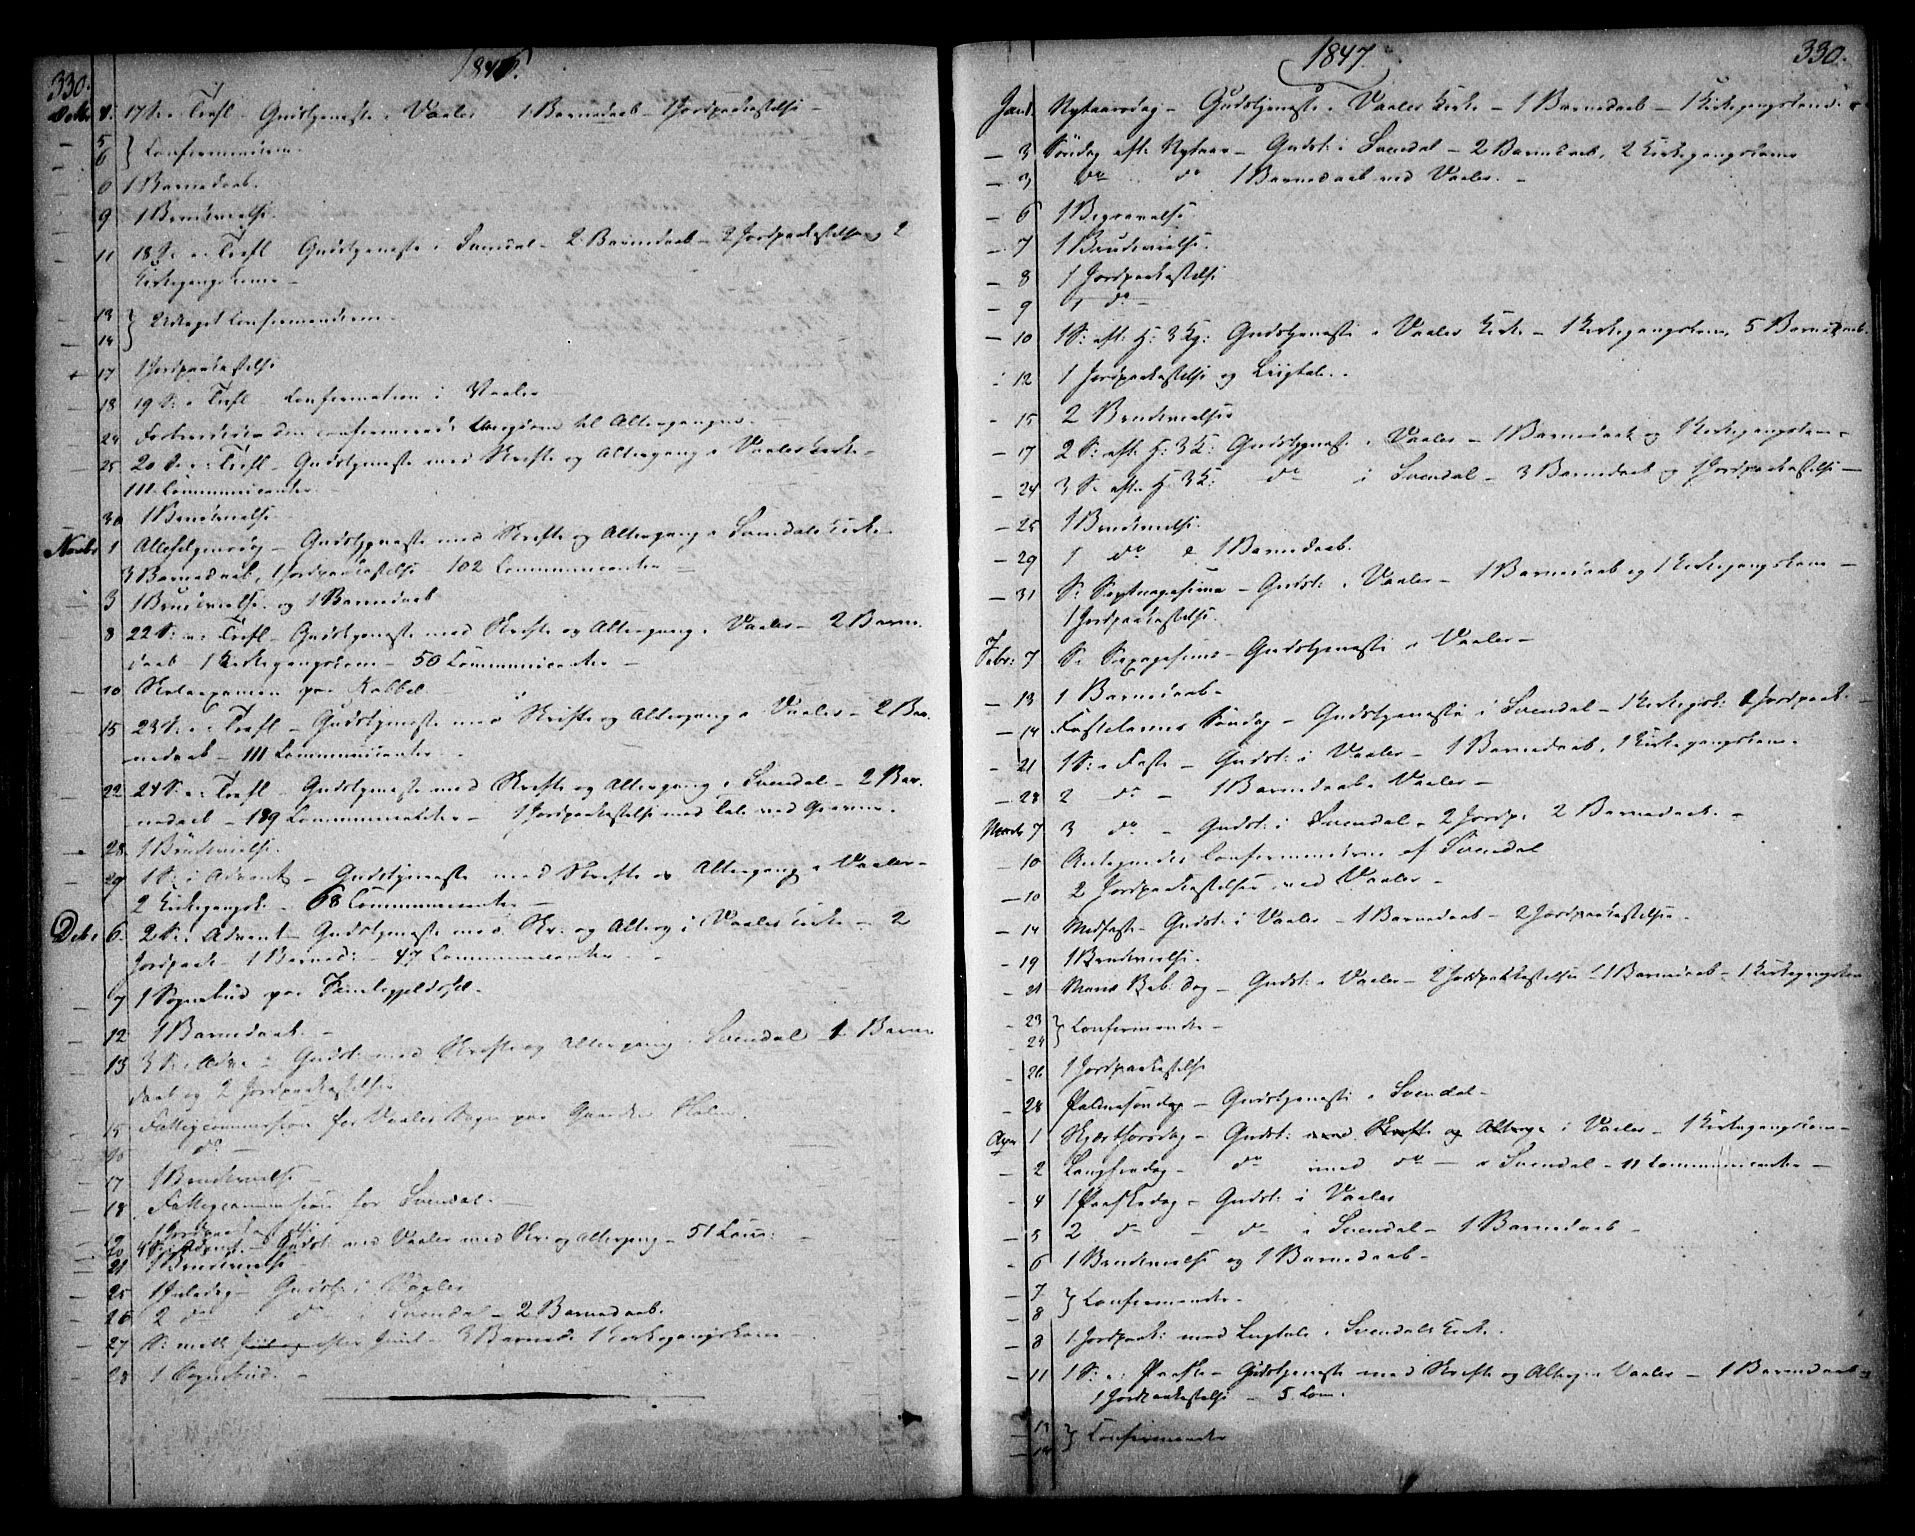 330.
1846.
Octbr 4. 17 S. e. Trefl. - Gudstjeneste i Vaaler 1 Barnedaab - 1 Jordpaakastelse -
- 5
- 6 } Confirmanderne.
- 6 1 Barnedaab.
- 9 1 Brudevielse.
- 11 18 S. e. Trefl. Gudstjeneste i Svendal - 2 Barnedaab - 2 Jordpaakastelse og 2
Kirkegangskoner -
- 13
- 14 } Confirmanderne.
- 17 1 Jordpaakastelse
- 18 19 S. e. Trefl - Confirmation i Vaaler
- 24 den confirmerede Ungdom til Altergangen. -
- 25 20 S. e. Trefl - Gudstjeneste med Skrifte og Altergang i Vaaler Kirke -
111 Communicanter.
- 30 1 Brudevielse
Novbr 1 Allehelgensdag - Gudstjeneste med Skrifte og Altergang i Svendals Kirke
3 Barnedaab, 1 Jordpaakastelse 102 Communicanter -
- 3 1 Brudevielse og 1 Barnedaab
- 8 22 S. e. Trefl - Gudstjeneste med Skrifte og Altergang i Vaaler - 2 Barne-
daab - 1 Kirkegangskone - 50 Communicanter -
- 10 Skoleexamen paa Kabbel -
- 15 23 S. e. Trefl - Gudstjeneste med Skrifte og Altergang i Vaaler - 2 Bar-
nedaab - 111 Communicanter -
- 22 24 S. e. Trefl - Gudstjeneste med Skrifte og Altergang i Svendal - 2 Bar-
nedaab - 189 Communicanter - 1 Jordpaakastelse med Tale ved Graven -
- 28 1 Brudevielse.
- 29 1 S. i Advent - Gudstjeneste med Skrifte og Altergang i Vaaler -
2 Kirkegangsk. - 68 Communicanter -
Debr 6. 2 S. i Advent - Gudstjeneste med Skr. og Alterg. i Vaaler Kirke - 2
Jordpaak - 1 Barned: - 47 Communicanter -
- 7 1 Sognebud paa
- 12 1 Barnedaab. -
- 13 3 S. i Adv. - Gudst. med Skrifte og Altergang i Svendal 1 Barne-
daab og 2 Jordpaakastelse
- 15 Fattigcommission for Vaaler Sogn paa Gaarden Holm.
- 16 do -
- 17 1 Brudevielse -
- 18 Fattigcommission for Svendal. -
- 19 1 Jordpaakastelse
- 20 4 S. i Advent. - Gudst. ved Vaaler med Skr. og Altergang - 51 Com: -
- 21 1 Brudevielse -
- 25 1 Juledag - Gudst: i Vaaler
- 26 2 do do i Svendal - 2 Barnedaab.
- 27 S: mell. Juul - 3 Barned. 1 Kirkegangskone -
- 28 1 Sognebud. -
1847.
330.
Jan 1. Nytaarsdag - Gudstjeneste i Vaaler Kirke - 1 Barnedaab - 1 Kirkegangskone -
- 3 Søndag eft. Nytaar - Gudst: i Svendal - 2 Barnedaab, 2 Kirkegangskone
- 3 do do 1 Barnedaab ved Vaaler. -
- 6 1 Begravelse
- 7 1 Brudevielse.
- 8 1 Jordpaakastelse
- 9 1 do -
- 10 1 S: eft. H: 3 Kg: Gudstjeneste i Vaaler Kirke - 1 Kirkegangskone, 5 Barnedaab.
- 12 1 Jordpaakastelse og Liigtale. -
- 15 2 Brudevielser
- 17 2 S: eft. H: 3 K: Gudstjeneste i Vaaler - 1 Barnedaab og 1 Kirkegangskone -
- 24 3 S. eft. H. 3 K: do i Svendal - 3 Barnedaab og 1 Jordpaakastelse -
- 25 1 Brudevielse.
- 29 1 do & 1 Barnedaab.
- 31 S: Septuagesima - Gudst: i Vaaler - 1 Barnedaab og 1 Kirkegangskone -
1 Jordpaakastelse.
Febr: 7 S. Sexagesima - Gudstjeneste i Vaaler -
- 13 1 Barnedaab -
- 14 Fastelavns Søndag - Gudstjeneste i Svendal - 1 Kirkegsk: 1 Jordpaak. -
- 21 1 S: i Faste - Gudst: i Vaaler - 1 Barnedaab, 1 Kirkegangskone -
- 28 2 do - 1 Barnedaab Vaaler -
Marts 7 3 do - Gudst: i Svendal - 2 Jordp: 2 Barnedaab. -
- 10 Antegnedes Confirmanderne af Svendal
- 10 2 Jordpaakastelser ved Vaaler -
- 14 Midfaste - Gudst: i Vaaler - 1 Barnedaab - 2 Jordpaakastelse -
- 19 1 Brudevielse.
- 21 Mariæ Beb. Dag - Gudst: i Vaaler - 2 Jordpaakastelse 1 Barnedaab - 1 Kirkegangskone
- 23
- 24 } Confirmander -
- 26 1 Jordpaakastelse
- 28 Palmesøndag - Gudstjeneste i Svendal -
Apr 1 Skjærthorsdag - Gudst: med Skrifte og Alterg. i Vaaler - 1 Kirkegangskone -
- 2 Langfredag - do med do - i Svendal - 11 Communicanter -
- 4 1 Paaskedag - Gudst: i Vaaler
- 5 2 do - do i Svendal - 1 Barnedaab -
- 6 1 Brudevielse og 1 Barnedaab -
- 7
- 8 } Confirmander -
- 8 1 Jordpaak: med Liigtale i Svendals Kirke.
- 11 1 S. e: Paaske - Gudstjeneste med Skrifte og Alterg. i Vaaler - 1 Barnedaab -
1 Jordpaakastelse - 5 Com.
- 13
- 14 } Confirmander